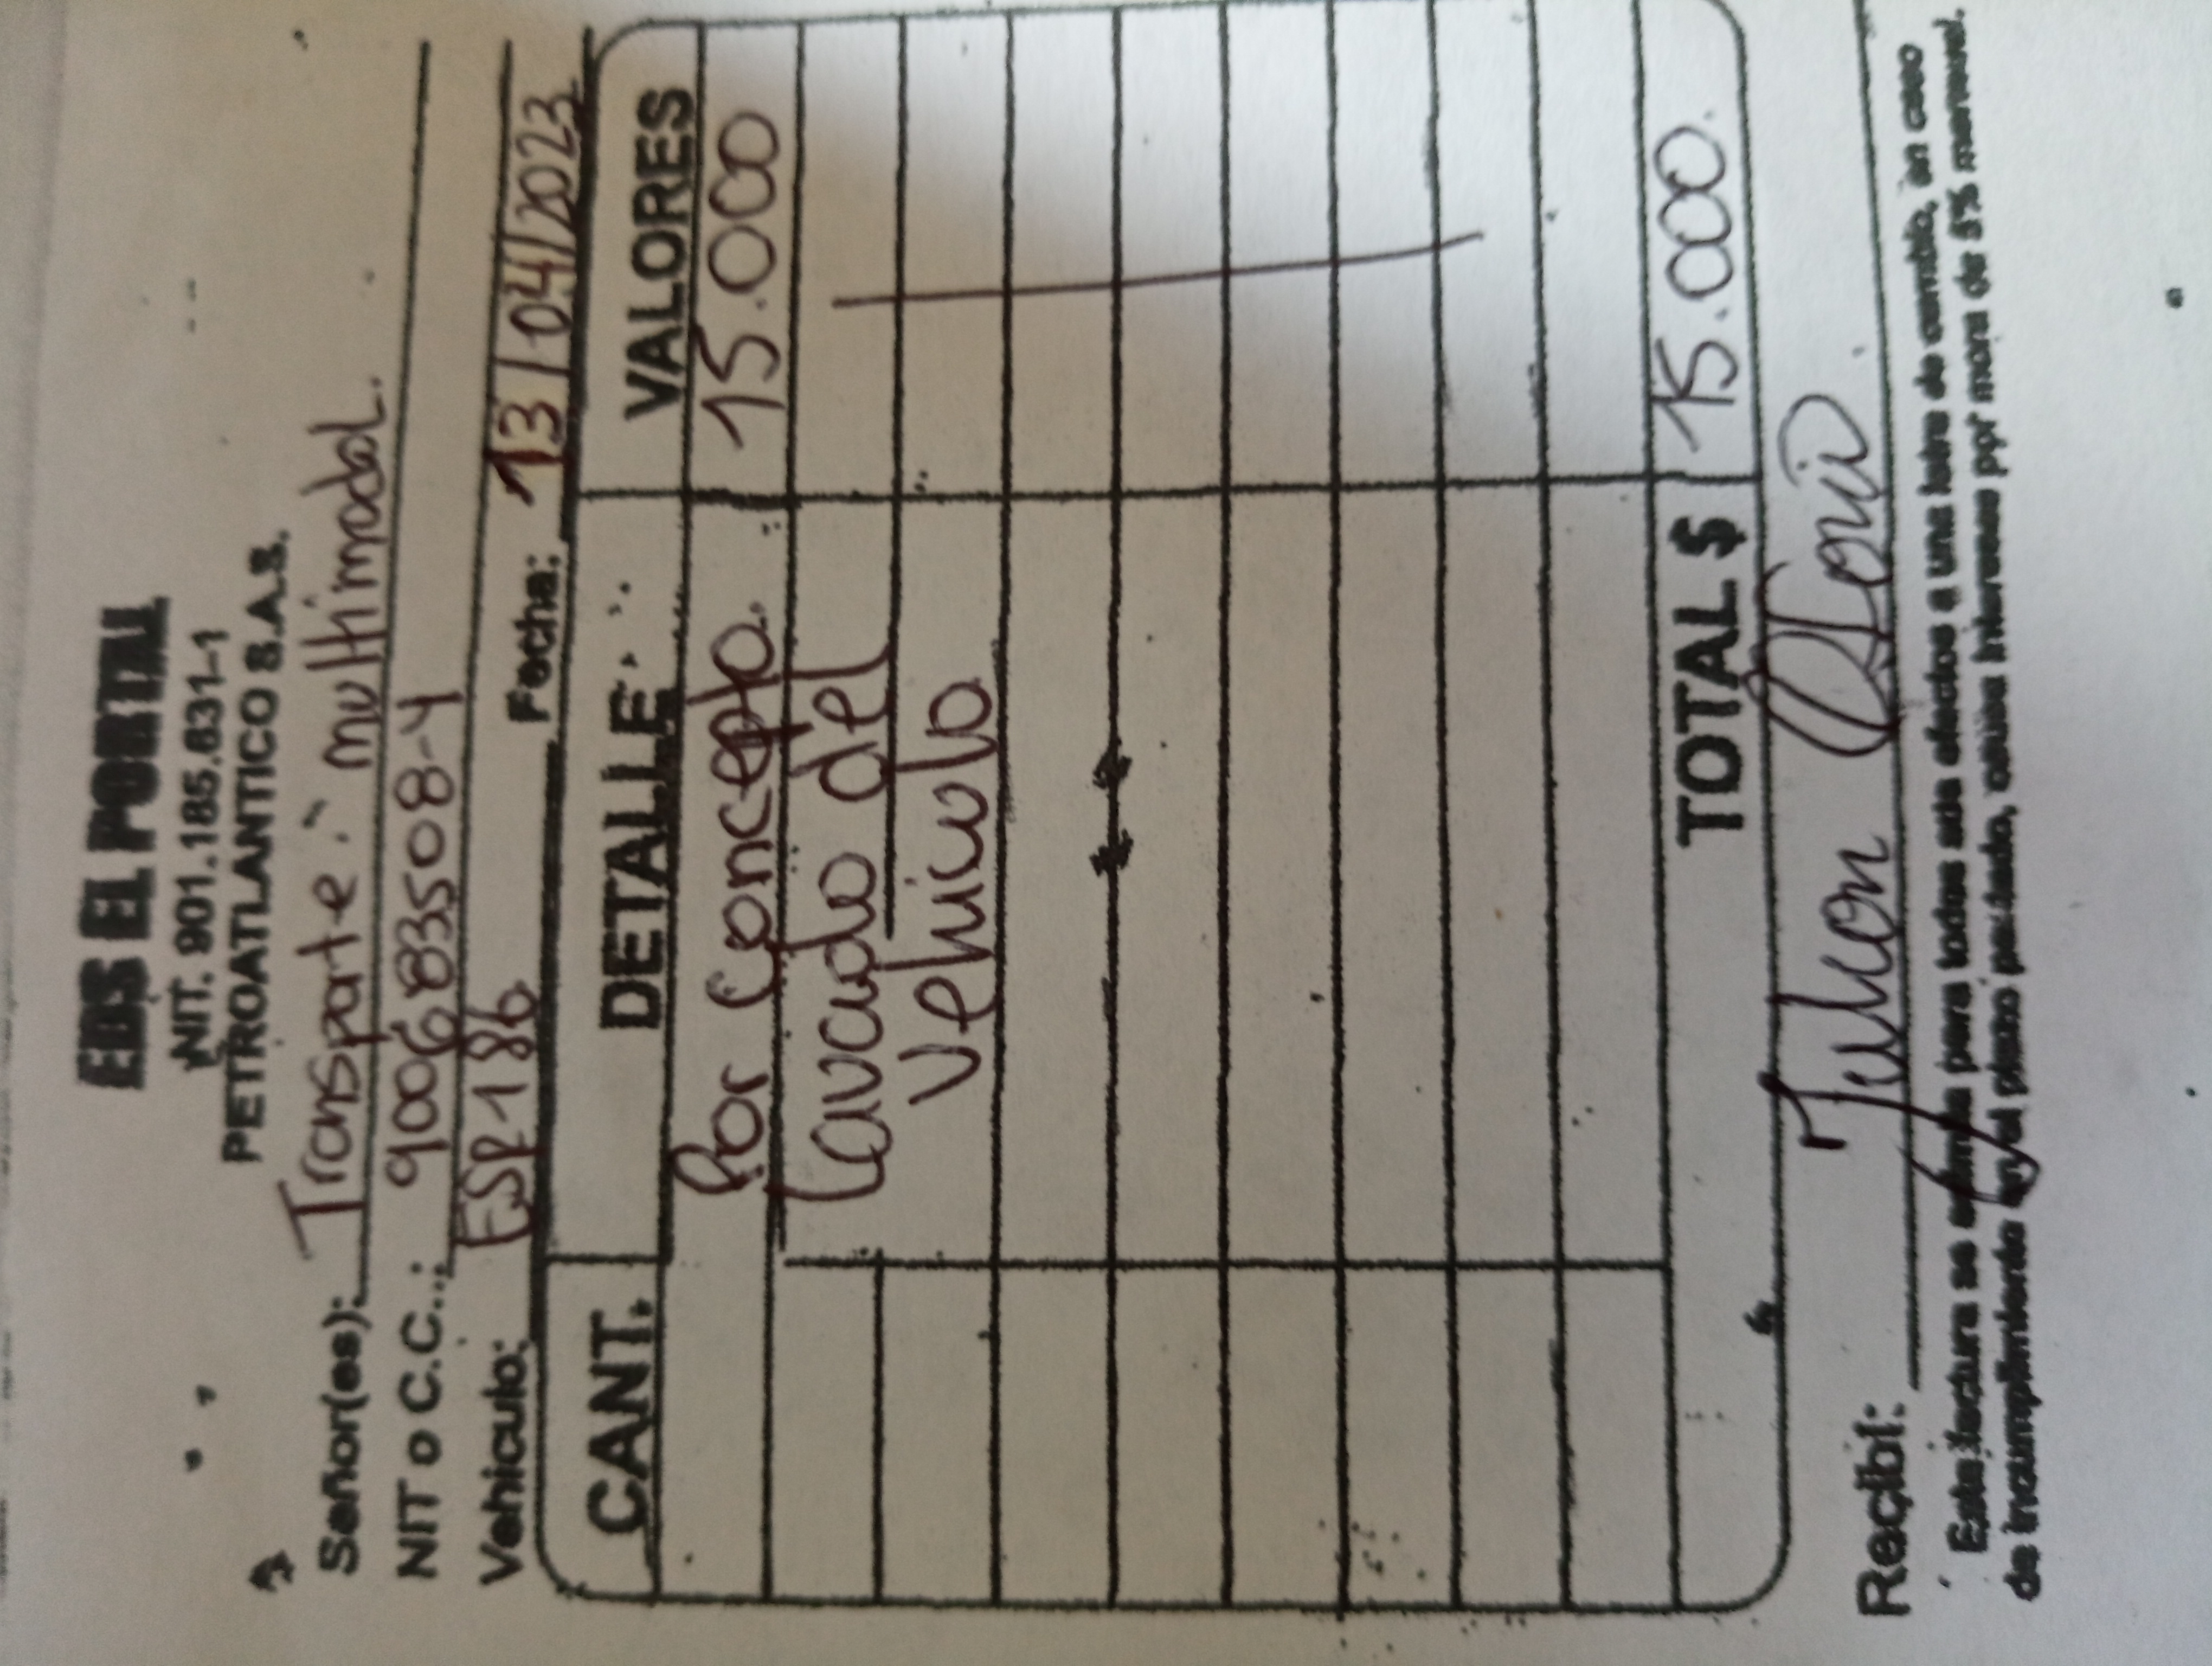 EDS EL PORTAL
NIT. 901.185.631-1
PETROATLANTICO S.A.S.
Señor(es): Transporte multimodal.
NIT o C.C.: 900683508-4
Vehiculo: ESR186 Fecha: 13/04/2023
CANT. DETALLE VALORES
Por Concepto 15.000
Lavado del
Vehiculo
TOTAL $ 15.000.
Recibí: Julian Osorio
Esta factura se asimila para todos sus efectos a una letra de cambio, en caso
de incumplimiento en el plazo pactado, causa intereses por mora de 5% mensual.